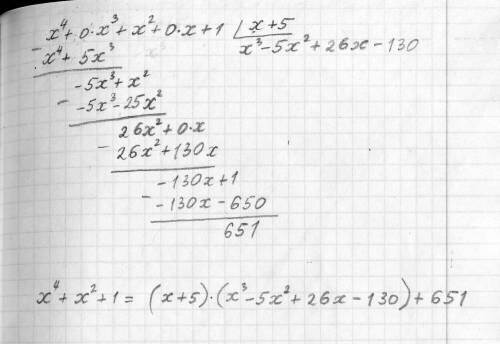 x⁴+0·x³+x²+0·x+1 | x+5
- x⁴+5x³ x³-5x²+26x-130
-5x³+x²
- -5x³-25x²
26x²+0·x
- 26x²+130x
-130x+1
- -130x-650
651
x⁴+x²+1=(x+5)·(x³-5x²+26x-130)+651